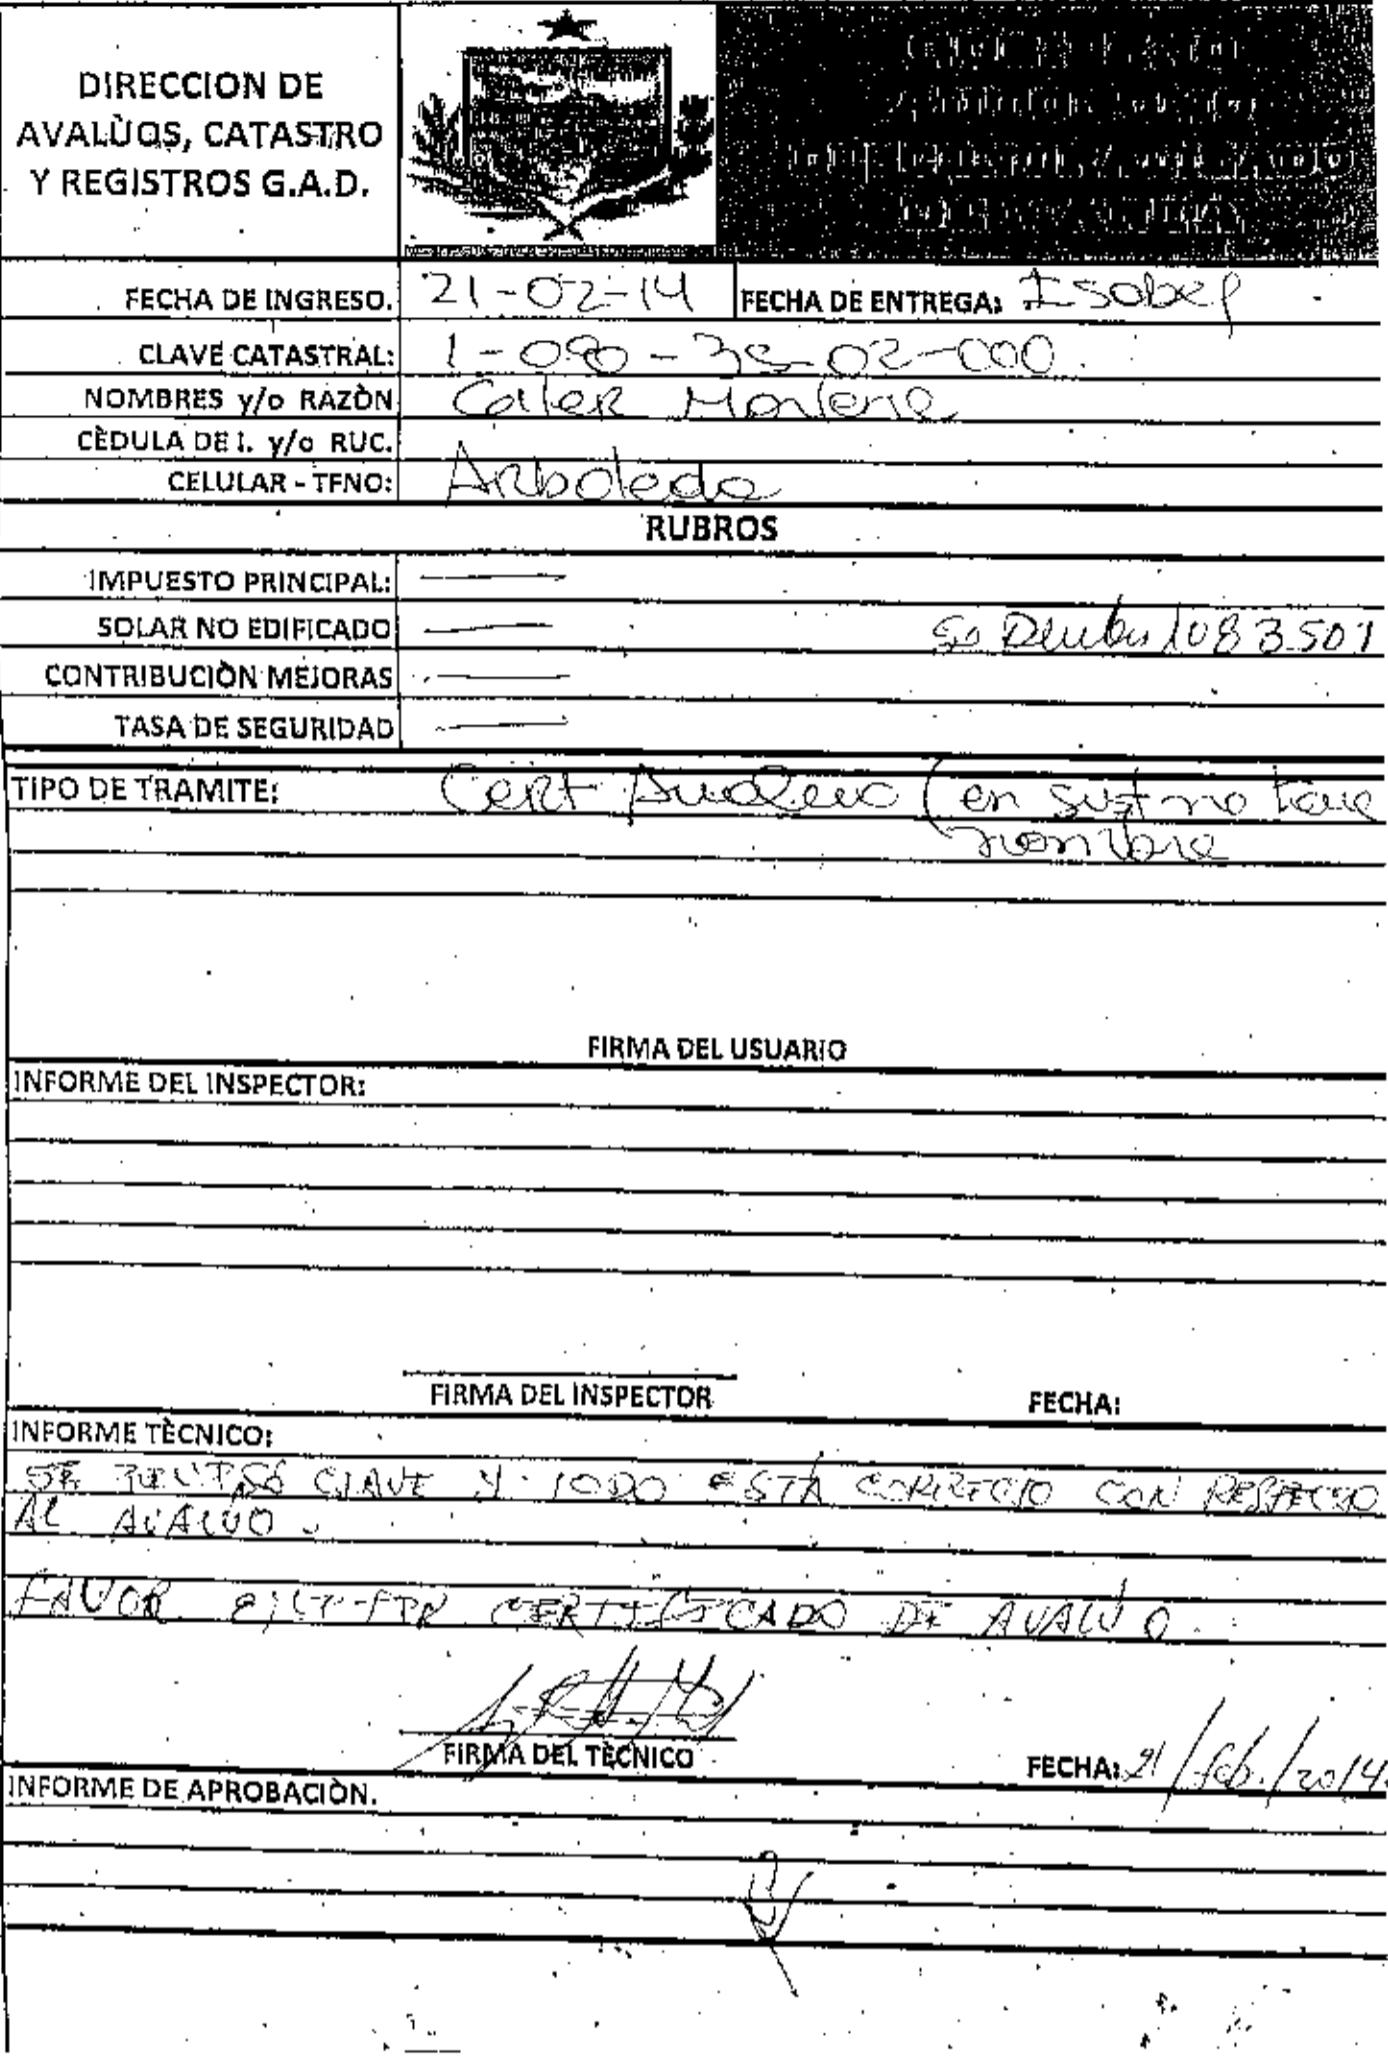 DIRECCION DE
AVALÙOS, CATASTRO
Y REGISTROS G.A.D.
FECHA DE INGRESO. 21-02-14 FECHA DE ENTREGA: Isabel
CLAVE CATASTRAL: 1-090-35-02-000
NOMBRES y/o RAZÒN Marlene
CÈDULA DE I. y/o RUC.
CELULAR - TFNO: Arboleda
RUBROS
IMPUESTO PRINCIPAL: —
SOLAR NO EDIFICADO —
CONTRIBUCIÒN MEJORAS —
TASA DE SEGURIDAD —
TIPO DE TRAMITE: Cert Avaluo (en sist no tiene
nombre
FIRMA DEL USUARIO
INFORME DEL INSPECTOR:
FIRMA DEL INSPECTOR FECHA:
INFORME TÈCNICO:
SE REVISÓ CLAVE Y TODO ESTÁ CORRECTO CON RESPECTO
AL AVALÚO.
FAVOR CERTIFICADO DE AVALÚO.
FIRMA DEL TÈCNICO FECHA: 21/feb./2014.
INFORME DE APROBACIÒN.